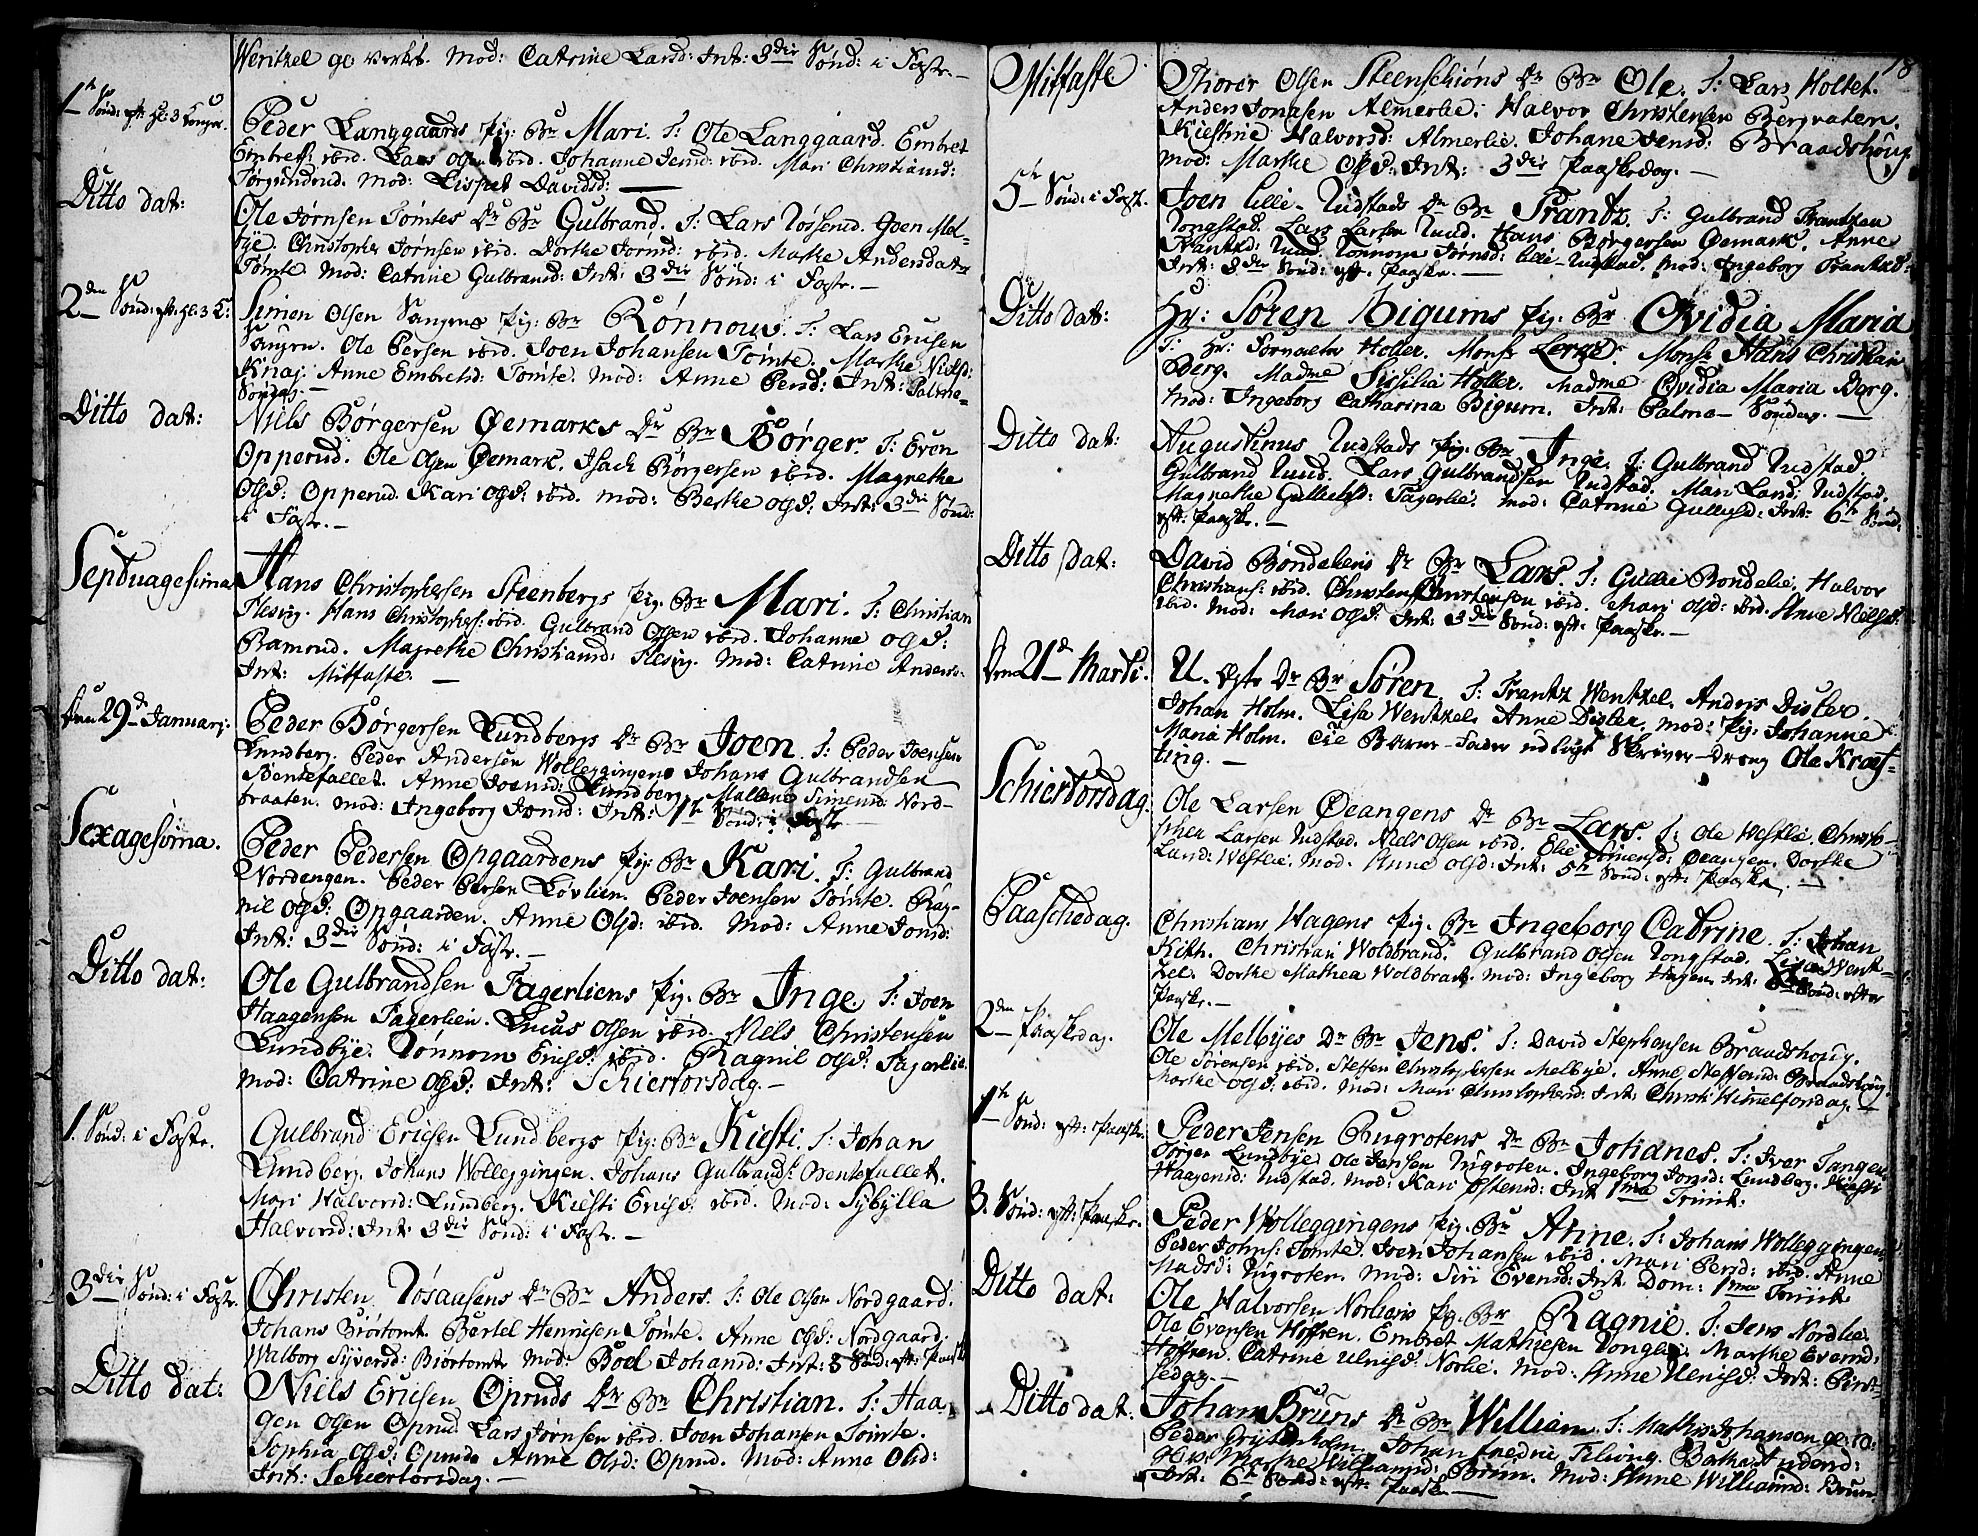 Mod: Catrine Larsd: Int: 3die Sönd: i Fastr. —
1te Sönd: eft: Hl: 3 Konger.
Peder Langgaards Pig: Bn Mari. T: Ole Langgaard. Embret
Embretss: ibid. Lars Olsen ibid. Johanne Jensd: ibid. Mari Christiansd:
Mod: Lispet Davidsd: —
Ditto dat:
Ole Jörnsen Tömtes Dr: Bn Gulbrand. T: Lars Joen Mel-
bye. Christopher Jörnsen ibid. Dorthe Jörnsd: ibid. Marthe Andersdatr
Tömte Mod: Catrine Gulbrandsd: Int: 3die Sönd: i Fastr. —
2den Sönd: eft: Hl: 3 K:
Simen Olsen Sangens Pig: Bn Rönnow. T: Lars Ericsen
Sangen. Ole Persen ibid. Joen Johansen Tömte. Marthe Nielsd:
Knaj. Anne Embretsd: Tömte. Mod: Anne Persd: Int: Palme-
Söndag. —
Ditto dat:
Niels Börgersen Oemarks Dr Bn Börger. T: Even
Opperud. Ole Olsen Oemark. Isach Börgersen ibid. Magrethe
Olsd: Opperud. Kari Olsd: ibid. Mod: Berthe Olsd: Int: 3die Sönd:
i Fastr. —
Septuagesima
Hans Christophersen Steenbergs Pig. Bn Mari. T: Christian
Flesvig. Hans Christophers: ibid. Gulbrand Olsen ibid. Johanne Olsd:
Ramsrud. Magrethe Christiansd: Flesvig. Mod: Catrine Andersd:
Int: Mitfaste. —
Den 29de Januarj:
Peder Börgersen Lundbergs Dr Bn Joen. T: Peder Joensen
Lundberg. Peder Andersen Wolleggingen. Johans Gulbrandsen
Bentefallet. Anne Joensd: Lundberg. Mallene Simensd: Nord-
braaten. Mod: Ingeborg Jonsd: Int: 1te Sönd: i Fastr
Sexagesima.
Peder Pedersen Opgaardens Pig: Bn Kari. T: Gulbrand
Nordengen. Peder Persen Lövlien. Peder Joensen Tömte. Rag-
nil Olsd: Opgaarden. Anne Olsd: ibid. Mod: Anne Jonsd:
Int: 3die Sönd: i Fastr. —
Ditto dat:
Ole Gulbrandsen Fagerliens Pig. Bn Inge. T: Joen
Haagensen Fagerlien. Lucas Olsen ibid. Niels Christensen
Lundbye. Rönnow Ericsd: ibid. Ragnil Olsd: Fagerlie.
Mod: Catrine Olsd: Int: Schiertorsdag. —
1. Sönd: i Fastr.
Gulbrand Ericsen Lundbergs Pig: Bn Kiesti. T: Johan
Lundberg. Johans Wolleggingen. Johans Gulbrands: Bentefallet.
Mari Halvorsd: Lundberg. Kiesti Ericsd: ibid. Mod: Sybylla
Halvorsd: Int: 3die Sönd: i Fastr. —
3die Sönd: i Fastr.
Christen Rösausens Dr Bn Anders. T: Ole Olsen Nordgaard.
Johans Biörtomt. Bertel Henricsen Tömte. Anne Olsd: Nordgaard.
Walborg Syversd: Biörtomte Mod: Boel Johansd: Int: 3 Sönd: eft: Paaske
Ditto dat:
Niels Ericsen Opruds Dr Bn Christian. T: Haa-
gen Olsen Oprud Lars Jörnsen ibid. Joen Johansen Tömte.
Sophia Olsd: Oprud. Anne Olsd: Oprud. Mod: Anne Olsd:
Int: Schiertorsdag. —
18
Mitfaste
Thorer Olsen Steenschiöns Dr Bn Ole. T: Lars Holtet.
Anders Jonasen Almerlie. Halvor Christensen Bergvaten.
Kiestine Halvorsd: Almerlie. Johane Jensd: Braadshoug
Mod: Marthe Olsd: Int: 3die Paaskedag. —
5te Sönd: i Fast.
Joen Lille-Rudstads Dr Bn Frantz. T: Gulbrand Frantzen
Rongstad. Lars Larsen Ruud. Hans Börgersen Oemark. Anne
Frantzd: Ruud. Rönnow Jörnsd: Lille-Rudstad. Mod: Ingeborg Frantzd:
Int: 3die Sönd: eft: Paaske. —
Ditto dat:
Hr: Sören Bigums Pig. Bn Ovidia Maria
T: Hr: Holler. Monsr Lerche. Monsr Hans Christian
Berg. Madme Sicilia Höller. Madme Ovidia Maria Berg.
Mod: Ingeborg Catharina Bigum. Int: Palme-Söndag. —
Ditto dat:
Augustinus Rudstads Pig. Bn Inge. T: Gulbrand Rudstad.
Gulbrand Ruud. Lars Gulbrandsen Rudstad. Mari Larsd: Rudstad.
Magrethe Gulliksd: Fagerlie. Mod: Catrine Gulliksd: Int: 6te Sönd:
eft: Paaske. —
Ditto dat:
David Böndeliens Dr Bn Lars. T: Gullie Böndelie. Halvor
Christians: ibid. Christen Christensen ibid. Mari Olsd: ibid. Anne Nielsd:
ibid. Mod: Mari Olsd: Int: 3die Sönd: eft: Paaske. —
Den 21de Marti.
U. Egte Dr Bn Sören. T: Frantz Wentzel. Andris Disler.
Johan Holm. Lisa Wentzel. Anne Disler. Mod: Pig. Johanne
Maria Holm. Til Barne-Fader udlagt Skriver-Dreng Ole Kraf-
ting. —
Schiertorsdag.
Ole Larsen Oeangens Dr Bn Lars. T: Ole Westlie. Christo-
pher Larsen Rudstad. Niels Olsen ibid. Elie Simensd: Oeangen. Dorthe
Larsd: Westlie. Mod: Anne Olsd: Int: 5te Sönd: eft: Paaske. —
Paaschedag.
Christians Hagens Pig. Bn Ingeborg Catrine. T: Johan
Kith. Christian Woldbrand. Gulbrand Olsen Rongstad. Lisa Went-
zel. Dorthe Mathea Woldbrant. Mod: Ingeborg Hagen. Int: Sönd: efter
Paaske. —
2den Paaskedag.
Ole Melbyes Dr Bn Jens. T: David Stephensen Braadshoug.
Ole Sörensen ibid. Steffen Christophersen Melbye. Anne Steffensd: Braadshoug.
Marthe Olsd: ibid. Mod: Mari Christophersd: Int: Christi Himmelfartsdag. —
1te Sönd: eft: Paaske.
Peder Jensen Bugrotens Dr Bn Johanes. T: Iver Tangen
Börger Lundbye Ole Jensen Rugroten. Ingeborg Jonsd: Lundberg. Kiesti
Haagensd: Rudstad. Mod: Kari Ostensd: Int 1ma Trinit.
3. Sönd: eft: Paaske.
Peder Wolleggingens Pig. Bn Anne. T: Johans Wolleggingen
Peder Johns: Tömte. Joen Johansen ibid. Mari Persd: ibid. Anne
Madsd: Rugroten. Mod: Siri Evensd: Int: Dom: 1ma Trinit.
Ditto dat:
Ole Halvorsen Norliens Pig. Bn Ragnil. T: Jens Nordlie
Ole Evensen Höffren. Embret Mathiesen Marthe Evensd:
Höffren. Catrine Ulrisd: Norlie. Mod: Anne Ulrisd: Int: Pint-
sedag. —
Ditto dat:
Johan Bruns Dr Bn William. T: Mathis Johansen
Peder Johan Fredric
Marthe Williamsd: Brun. Mod: Anne Williamsd: Brun.
Int: 6te Sönd: eft: Paaske. —